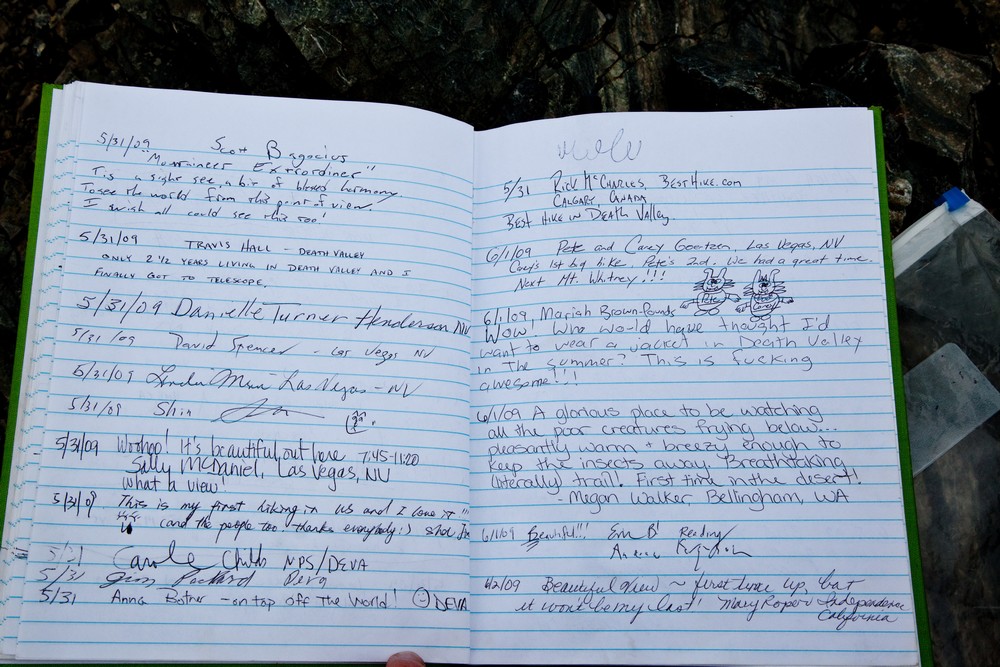 5/31/09 Scott Bagocius
"Mountaineer Extrordiner"
Tis a sight see a bit of blessed harmony
To see the world from this point of view.
I wish all could see this too!
5/31/09 TRAVIS HALL - DEATH VALLEY
ONLY 2 1/2 YEARS LIVING IN DEATH VALLEY AND I
FINALLY GOT TO TELESCOPE.
5/31/09 Danielle Turner Henderson NV
5/31/09 David Spencer - Las Vegas NV
5/31/09 Linda Las Vegas - NV
5/31/09 Shin
5/31/09 Woohoo! It's beautiful out here 7:45-11:20
Sally McDaniel, Las Vegas, NV
what a view!
5/31/09 This is my first hiking in US and I love it!!!
(and the people too - thanks everybody :)
5/31 Carole Childs NPS/DEVA
5/31 Jim Deva
5/31 Anna Botner - on top off the World! DEVA
5/31 Rick McCharles, BestHike.com
Calgary, Canada
Best Hike in Death Valley.
6/1/09 Pete and Carey Goetzen, Las Vegas, NV
Carey's 1st big hike, Pete's 2nd. We had a great time.
Next Mt. Whitney!!!
Pete
Carey
6/1/09, Mariah Brown-Pounds
Wow! Who would have thought I'd
want to wear a jacket in Death Valley
in the summer? This is fucking
awesome!!!
6/1/09 A glorious place to be watching
all the poor creatures frying below...
pleasantly warm + breezy enough to
keep the insects away. Breathtaking
(literally) trail. First time in the desert!
- Megan Walker, Bellingham, WA
6/1/09 Beautiful!!! Erin B!
6/2/09 Beautiful View ~ first time up, but
it won't be my last! Mary Roper Independence
California